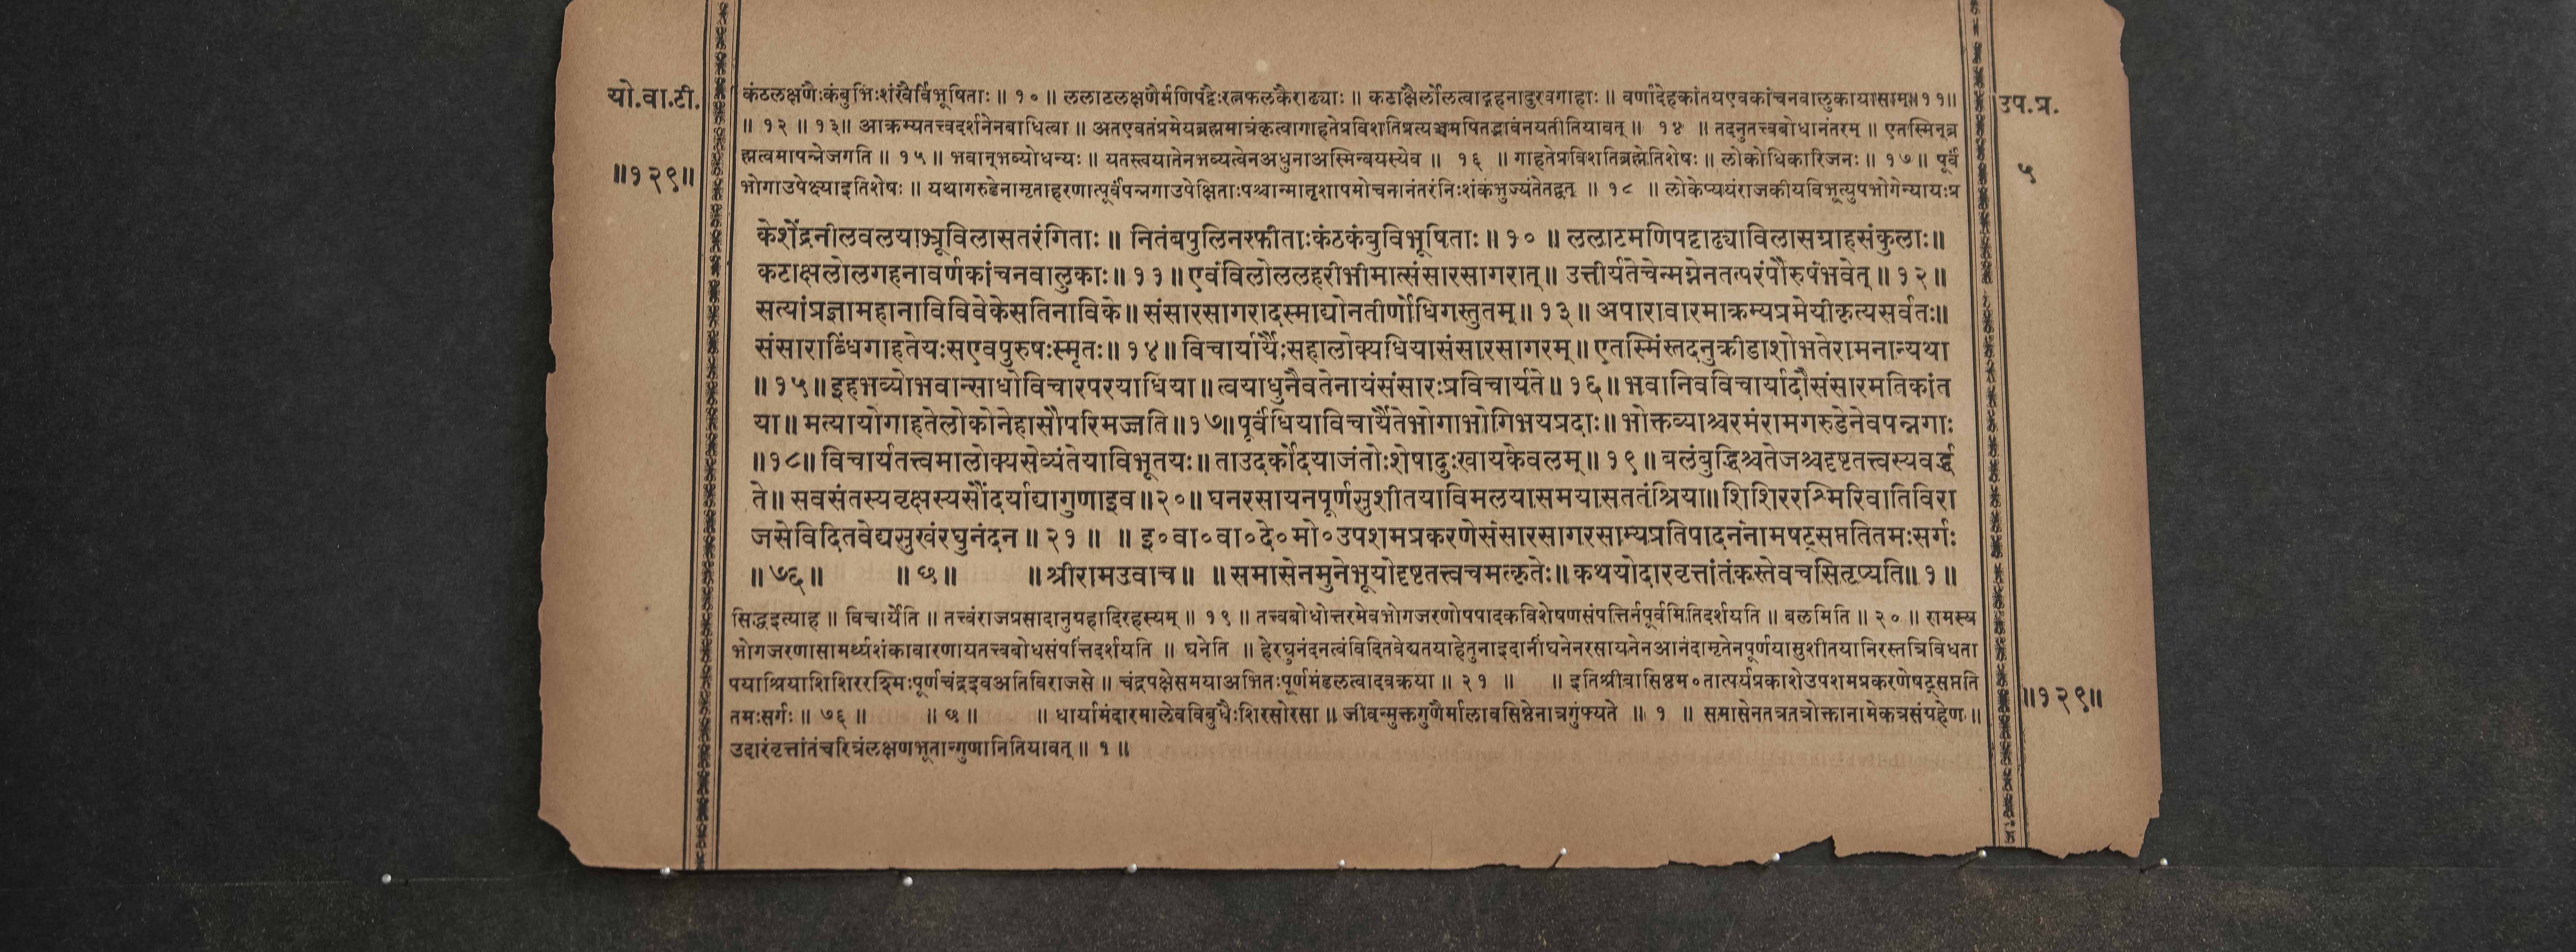 यो.वा.टी.
॥१२९॥
कंठलक्षणैःकंबुभिःशंखैर्विभूषिताः ॥ १० ॥ ललाटलक्षणैर्मणिपट्टैःरत्नफलकैराढ्याः ॥ कटाक्षैर्लोलत्वाद्गहनादुरवगाहाः ॥ वर्णादेहकांतयएवकांचनवालुकायासाम्॥११॥
॥ १२ ॥ १३॥ आक्रम्यतत्त्वदर्शनेनबाधित्वा ॥ अतएवतंप्रमेयब्रह्ममात्रंकृत्वागाहतेप्रविशतिप्रत्यञ्चमपितद्भावंनयतीतियावत् ॥ १४ ॥ तदनुतत्त्वबोधानंतरम् ॥ एतस्मिन्ब्र
ह्मत्वमापन्नेजगति ॥ १५ ॥ भवान्भव्योधन्यः ॥ यतस्त्वयातेनभव्यत्वेनअधुनाअस्मिन्वयस्येव ॥ १६ ॥ गाहतेप्रविशतिब्रह्मेतिशेषः ॥ लोकोधिकारिजनः ॥ १७ ॥ पूर्वं
भोगाउपेक्ष्याइतिशेषः ॥ यथागरुडेनामृताहरणात्पूर्वंपन्नगाउपेक्षिताःपश्चान्मातृशापमोचनानंतरंनिःशंकंभुज्यंतेतद्वत् ॥ १८ ॥ लोकेप्ययंराजकीयविभूत्युपभोगेन्यायःप्र
केशेंद्रनीलवलयाभ्रूविलासतरंगिताः ॥ नितंबपुलिनस्फीताःकंठकंबुविभूषिताः ॥ १० ॥ ललाटमणिपट्टाढ्याविलासग्राहसंकुलाः॥
कटाक्षलोलगहनावर्णकांचनवालुकाः॥ ११ ॥ एवंविलोललहरीभीमात्संसारसागरात्॥ उत्तीर्यतेचेन्मग्नेनतत्परंपौरुषंभवेत् ॥ १२॥
सत्यांप्रज्ञामहानाविविवेकेसतिनाविके॥ संसारसागरादस्माद्योनतीर्णोधिगस्तुतम्॥ १३॥ अपारावारमाक्रम्यप्रमेयीकृत्यसर्वतः॥
संसाराब्धिंगाहतेयःसएवपुरुषःस्मृतः॥ १४ ॥ विचार्यार्यैःसहालोक्यधियासंसारसागरम्॥ एतस्मिंस्तदनुक्रीडाशोभतेरामनान्यथा
॥ १५ ॥ इहभव्योभवान्साधोविचारपरयाधिया॥ त्वयाधुनैवतेनायंसंसारःप्रविचार्यते॥ १६॥ भवानिवविचार्यादौसंसारमतिकांत
या॥ मत्यायोगाहतेलोकोनेहासौपरिमज्जति॥१७॥ पूर्वंधियाविचार्यैतेभोगाभोगिभयप्रदाः॥ भोक्तव्याश्चरमंरामगरुडेनेवपन्नगाः
॥१८॥ विचार्यतत्त्वमालोक्यसेव्यंतेयाविभूतयः॥ ताउदर्कोदयाजंतोःशेषादुःखायकेवलम्॥ १९॥ बलंबुद्धिश्चतेजश्चदृष्टतत्त्वस्यवर्द्ध
ते॥ सवसंतस्यवृक्षस्यसौंदर्याद्यागुणाइव॥२०॥ घनरसायनपूर्णसुशीतयाविमलयासमयासततंश्रिया॥ शिशिररश्मिरिवातिविरा
जसेविदितवेद्यसुखंरघुनंदन॥ २१ ॥ ॥ इ०वा०वा०दे०मो०उपशमप्रकरणेसंसारसागरसाम्यप्रतिपादनंनामषट्सप्ततितमःसर्गः
॥७६॥ ॥ ७ ॥ ॥ श्रीरामउवाच॥ ॥ समासेनमुनेभूयोदृष्टतत्त्वचमत्कृतेः॥ कथयोदारवृत्तांतंकस्तेवचसितृप्यति॥ १॥
सिद्धइत्याह ॥ विचार्येति ॥ तत्त्वंराजप्रसादानुग्रहादिरहस्यम् ॥ १९ ॥ तत्त्वबोधोत्तरमेवभोगजरणोपपादकविशेषणसंपत्तिर्नपूर्वमितिदर्शयति ॥ बलमिति ॥ २० ॥ रामस्य
भोगजरणासामर्थ्यशंकावारणायतत्त्वबोधसंपत्तिंदर्शयति ॥ घनेति ॥ हेरघुनंदनत्वंविदितवेद्यतयाहेतुनाइदानींघनेनरसायनेनआनंदामृतेनपूर्णयासुशीतयानिरस्तत्रिविधता
पयाश्रियाशिशिररश्मिःपूर्णचंद्रइवअतिविराजसे ॥ चंद्रपक्षेसमयाअभितःपूर्णमंडलत्वादवक्रया ॥ २१ ॥ ॥ इतिश्रीवासिष्ठम०तात्पर्यप्रकाशेउपशमप्रकरणेषट्सप्तति
तमःसर्गः ॥ ७६ ॥ ॥ ७ ॥ ॥ धार्यामंदारमालेवविबुधैःशिरसोरसा ॥ जीवन्मुक्तगुणैर्मालावसिष्ठेनात्रगुंफ्यते ॥ १ ॥ समासेनतत्रतत्रोक्तानामेकत्रसंग्रहेण ॥
उदारंवृत्तांतंचरित्रंलक्षणभूतान्गुणानितियावत् ॥ १ ॥
उप.प्र.
५
॥१२९॥